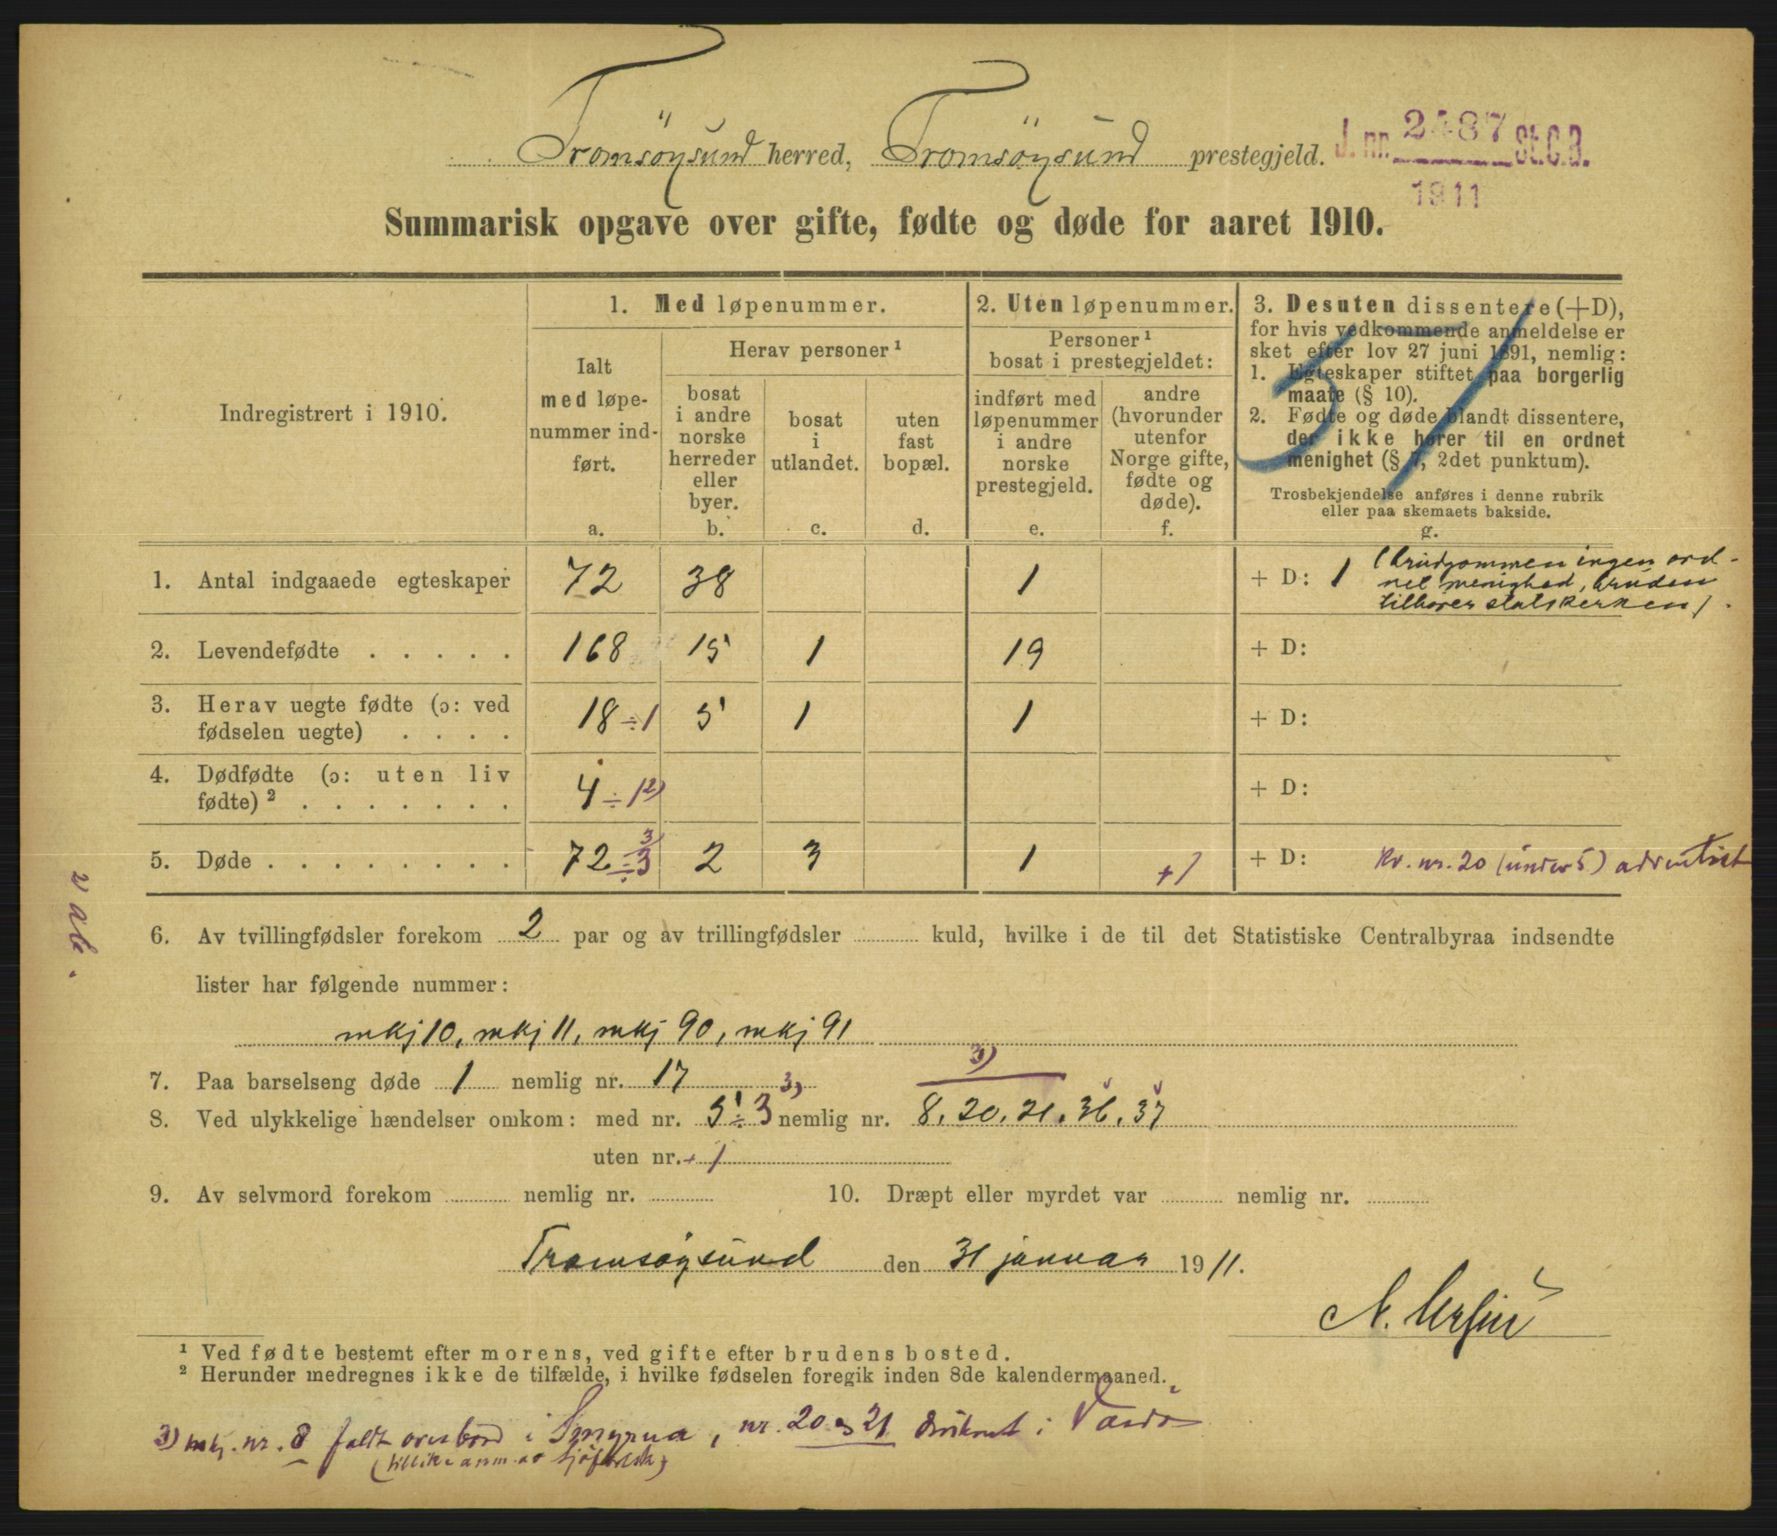 Tromsöysund herred, Tromsöysund prestegjeld. J. nr. 2487 St.C.B.
1911
Summarisk opgave over gifte, fødte og døde for aaret 1910.
Indregistrert i 1910.
1. Med løpenummer.
Ialt
med løpe-
nummer ind-
ført.
a.
Herav personer ¹
bosat
i andre
norske
herreder
eller
byer.
b.
bosat
i
utlandet.
c.
uten
fast
bopæl.
d.
2. Uten løpenummer.
Personer ¹
bosat i prestegjeldet:
indført med
løpenummer
i andre
norske
prestegjeld.
e.
andre
(hvorunder
utenfor
Norge gifte,
fødte og
døde).
f.
3. Desuten dissentere (+D),
for hvis vedkommende anmeldelse er
sket efter lov 27 juni 1891, nemlig:
1. Egteskaper stiftet paa borgerlig
maate (§ 10).
2. Fødte og døde blandt dissentere,
der ikke hører til en ordnet
menighet (§ 7, 2det punktum).
Trosbekjendelse anføres i denne rubrik
eller paa skemaets bakside.
g.
1. Antal indgaaede egteskaper 72 38 1 + D: 1 (brudgommen ingen ord-
net menighed, bruden
tilhører statskerken).
2. Levendefødte . . . . . 168 15 1 19 + D:
3. Herav uegte fødte (ɔ: ved
fødselen uegte) . . . . 18 ÷1 5 1 1 + D:
4. Dødfødte (ɔ: uten liv
fødte) ² . . . . . . . 4 ÷1 2) + D:
5. Døde . . . . . . . . 72 ÷3 3) 2 3 1 +1 + D: kv. nr. 20 (under 5) adventist
6. Av tvillingfødsler forekom 2 par og av trillingfødsler kuld, hvilke i de til det Statistiske Centralbyraa indsendte
lister har følgende nummer:
mkj 10, mkj 11, mkj 90, mkj 91
7. Paa barselseng døde 1 nemlig nr. 17
8. Ved ulykkelige hændelser omkom: med nr. 5 ÷3 3) nemlig nr. 8, 20, 21, 36, 37 3)
uten nr. + 1
9. Av selvmord forekom nemlig nr. 10. Dræpt eller myrdet var nemlig nr.
Tromsöysund den 31 januar 1911.
¹ Ved fødte bestemt efter morens, ved gifte efter brudens bosted.
² Herunder medregnes ikke de tilfælde, i hvilke fødselen foregik inden 8de kalendermaaned.
3) mkj. nr. 8 faldt overbord i Smyrna, nr. 20 og 21 druknet i Vardö